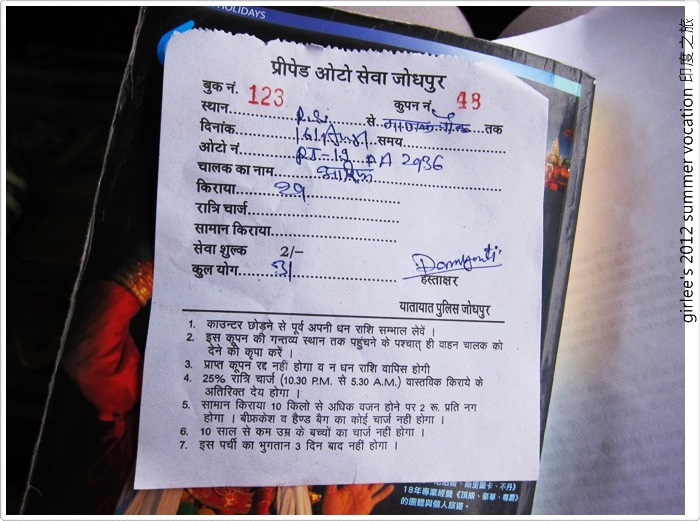 HOLIDAYS
प्रीपेड ओटो सेवा जोधपुर
बुक नं. 123 कुपन नं. 43
स्थान R.S. से तक
दिनांक समय
ओटो नं. RJ-19 PA 2936
चालक का नाम
किराया
रात्रि चार्ज
सामान किराया
सेवा शुल्क 2/-
कुल योग
हस्ताक्षर
यातायात पुलिस जोधपुर
1. काउन्टर छोड़ने से पूर्व अपनी धन राशि सम्भाल लेवें ।
2. इस कूपन की गन्तव्य स्थान तक पहुंचने के पश्चात् ही वाहन चालक को
देने की कृपा करें ।
3. प्राप्त कूपन रद्द नहीं होगा व न धन राशि वापिस होगी
4. 25% रात्रि चार्ज (10.30 P.M. से 5.30 A.M.) वास्तविक किराये के
अतिरिक्त देय होगा ।
5. सामान किराया 10 किलो से अधिक वजन होने पर 2 रू. प्रति नग
होगा । बीफ्रकेश व हैण्ड बैग का कोई चार्ज नहीं होगा ।
6. 10 साल से कम उम्र के बच्चों का चार्ज नहीं होगा ।
7. इस पर्ची का भुगतान 3 दिन बाद नहीं होगा ।
斯里蘭卡、不丹》
18年專業經營《頂級、豪華、尊爵》
的團體與個人旅遊。
girlee's 2012 summer vocation 印度之旅